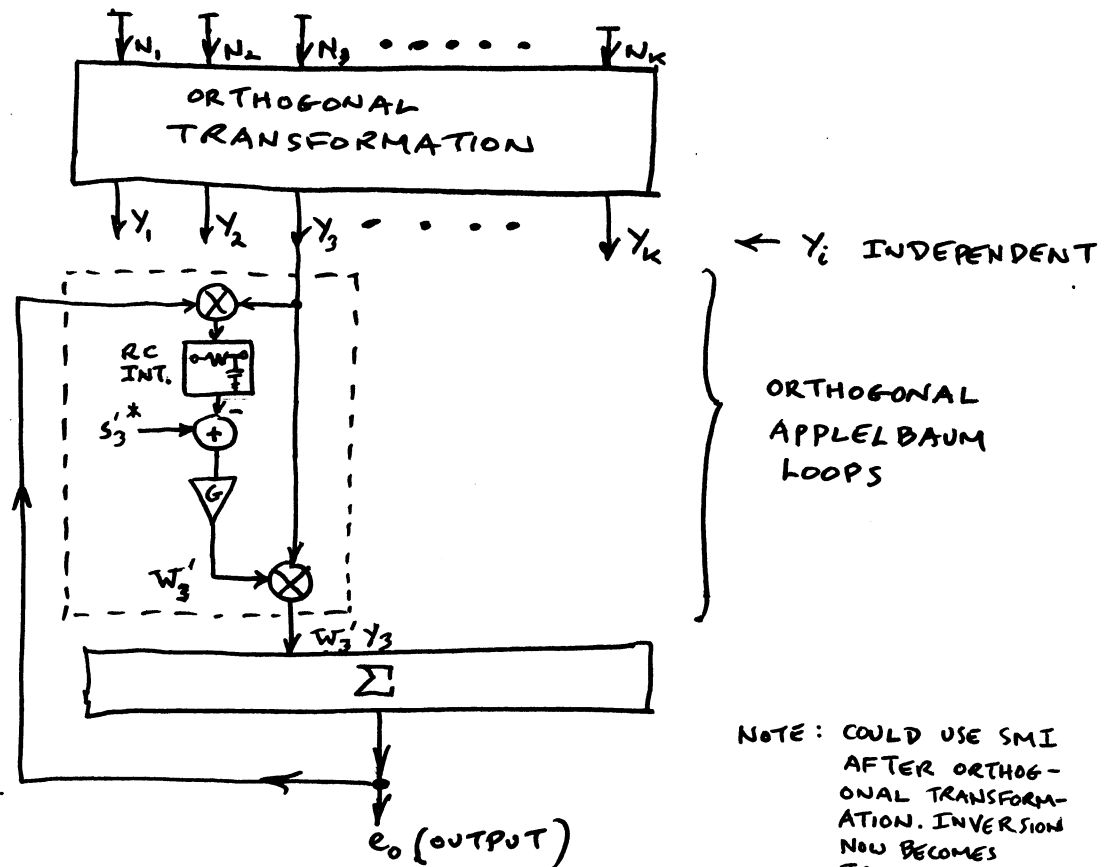 N1 N2 N3 • • • • • NK
ORTHOGONAL
TRANSFORMATION
Y1 Y2 Y3 • • • • YK
← Yi INDEPENDENT
RC
INT.
-
S3'* +
G
W3'
ORTHOGONAL
APPLELBAUM
LOOPS
W3' Y3
Σ
e0 (OUTPUT)
NOTE: COULD USE SMI
AFTER ORTHOG-
ONAL TRANSFORM-
ATION. INVERSION
NOW BECOMES